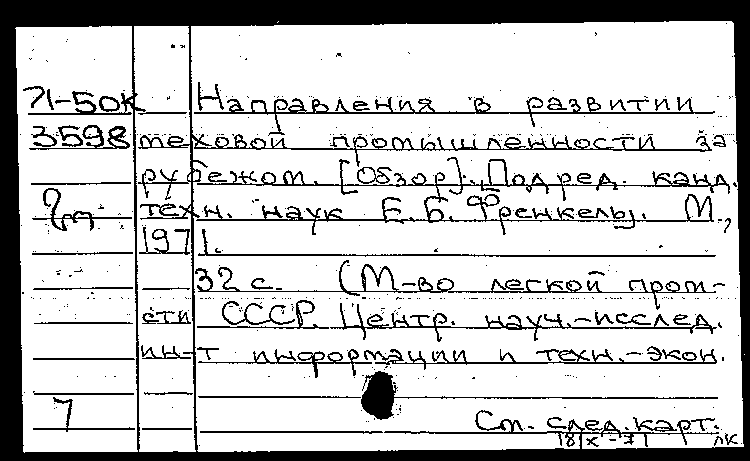 71-50к Направления в развитии
3598 меховой промышленности за
рубежом. [Обзор]. Под ред. канд.
техн. наук Е. Б. Френкель. М.,
1971.
32 с. (М-во легкой пром-
сти СССР. Центр. науч.-исслед.
ин-т информации и техн.-экон.
7
См. след. карт.
18/X-71 лк